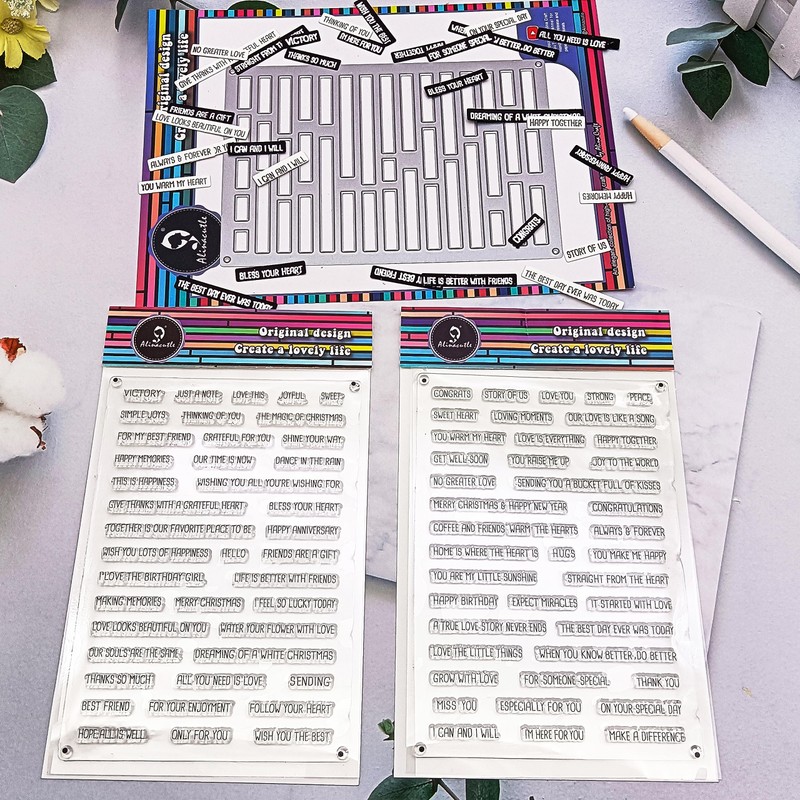 Original design
Create a lovely life
Alinacutle
THINKING OF YOU
WISH YOU THE BEST
I'M HERE FOR YOU
ON YOUR SPECIAL DAY
ALL YOU NEED IS LOVE
NO GREATER LOVE
VICTORY
STRAIGHT FROM
GIVE THANKS WITH
THANKS SO MUCH
HAPPY TOGETHER
FOR SOMEONE SPECIAL
BETTER, DO BETTER
BLESS YOUR HEART
FRIENDS ARE A GIFT
LOVE LOOKS BEAUTIFUL ON YOU
DREAMING OF A WHITE CHRISTMAS
HAPPY TOGETHER
ALWAYS & FOREVER
I CAN AND I WILL
I CAN AND I WILL
HAPPY ANNIVERSARY
YOU WARM MY HEART
HAPPY MEMORIES
CONGRATS
STORY OF US
BLESS YOUR HEART
BEST FRIEND
LIFE IS BETTER WITH FRIENDS
THE BEST DAY EVER WAS TODAY
THE BEST DAY EVER WAS TODAY
Alinacutle
Original design
Create a lovely life
VICTORY JUST A NOTE LOVE THIS JOYFUL SWEET
SIMPLE JOYS THINKING OF YOU THE MAGIC OF CHRISTMAS
FOR MY BEST FRIEND GRATEFUL FOR YOU SHINE YOUR WAY
HAPPY MEMORIES OUR TIME IS NOW DANCE IN THE RAIN
THIS IS HAPPINESS WISHING YOU ALL YOU'RE WISHING FOR
GIVE THANKS WITH A GRATEFUL HEART BLESS YOUR HEART
TOGETHER IS OUR FAVORITE PLACE TO BE HAPPY ANNIVERSARY
WISH YOU LOTS OF HAPPINESS HELLO FRIENDS ARE A GIFT
I LOVE THE BIRTHDAY GIRL LIFE IS BETTER WITH FRIENDS
MAKING MEMORIES MERRY CHRISTMAS I FEEL SO LUCKY TODAY
LOVE LOOKS BEAUTIFUL ON YOU WATER YOUR FLOWER WITH LOVE
OUR SOULS ARE THE SAME DREAMING OF A WHITE CHRISTMAS
THANKS SO MUCH ALL YOU NEED IS LOVE SENDING
BEST FRIEND FOR YOUR ENJOYMENT FOLLOW YOUR HEART
HOPE ALL IS WELL ONLY FOR YOU WISH YOU THE BEST
Alinacutle
Original design
Create a lovely life
CONGRATS STORY OF US LOVE YOU STRONG PEACE
SWEET HEART LOVING MOMENTS OUR LOVE IS LIKE A SONG
YOU WARM MY HEART LOVE IS EVERYTHING HAPPY TOGETHER
GET WELL SOON YOU RAISE ME UP JOY TO THE WORLD
NO GREATER LOVE SENDING YOU A BUCKET FULL OF KISSES
MERRY CHRISTMAS & HAPPY NEW YEAR CONGRATULATIONS
COFFEE AND FRIENDS WARM THE HEARTS ALWAYS & FOREVER
HOME IS WHERE THE HEART IS HUGS YOU MAKE ME HAPPY
YOU ARE MY LITTLE SUNSHINE STRAIGHT FROM THE HEART
HAPPY BIRTHDAY EXPECT MIRACLES IT STARTED WITH LOVE
A TRUE LOVE STORY NEVER ENDS THE BEST DAY EVER WAS TODAY
LOVE THE LITTLE THINGS WHEN YOU KNOW BETTER,DO BETTER
GROW WITH LOVE FOR SOMEONE SPECIAL THANK YOU
MISS YOU ESPECIALLY FOR YOU ON YOUR SPECIAL DAY
I CAN AND I WILL I'M HERE FOR YOU MAKE A DIFFERENCE